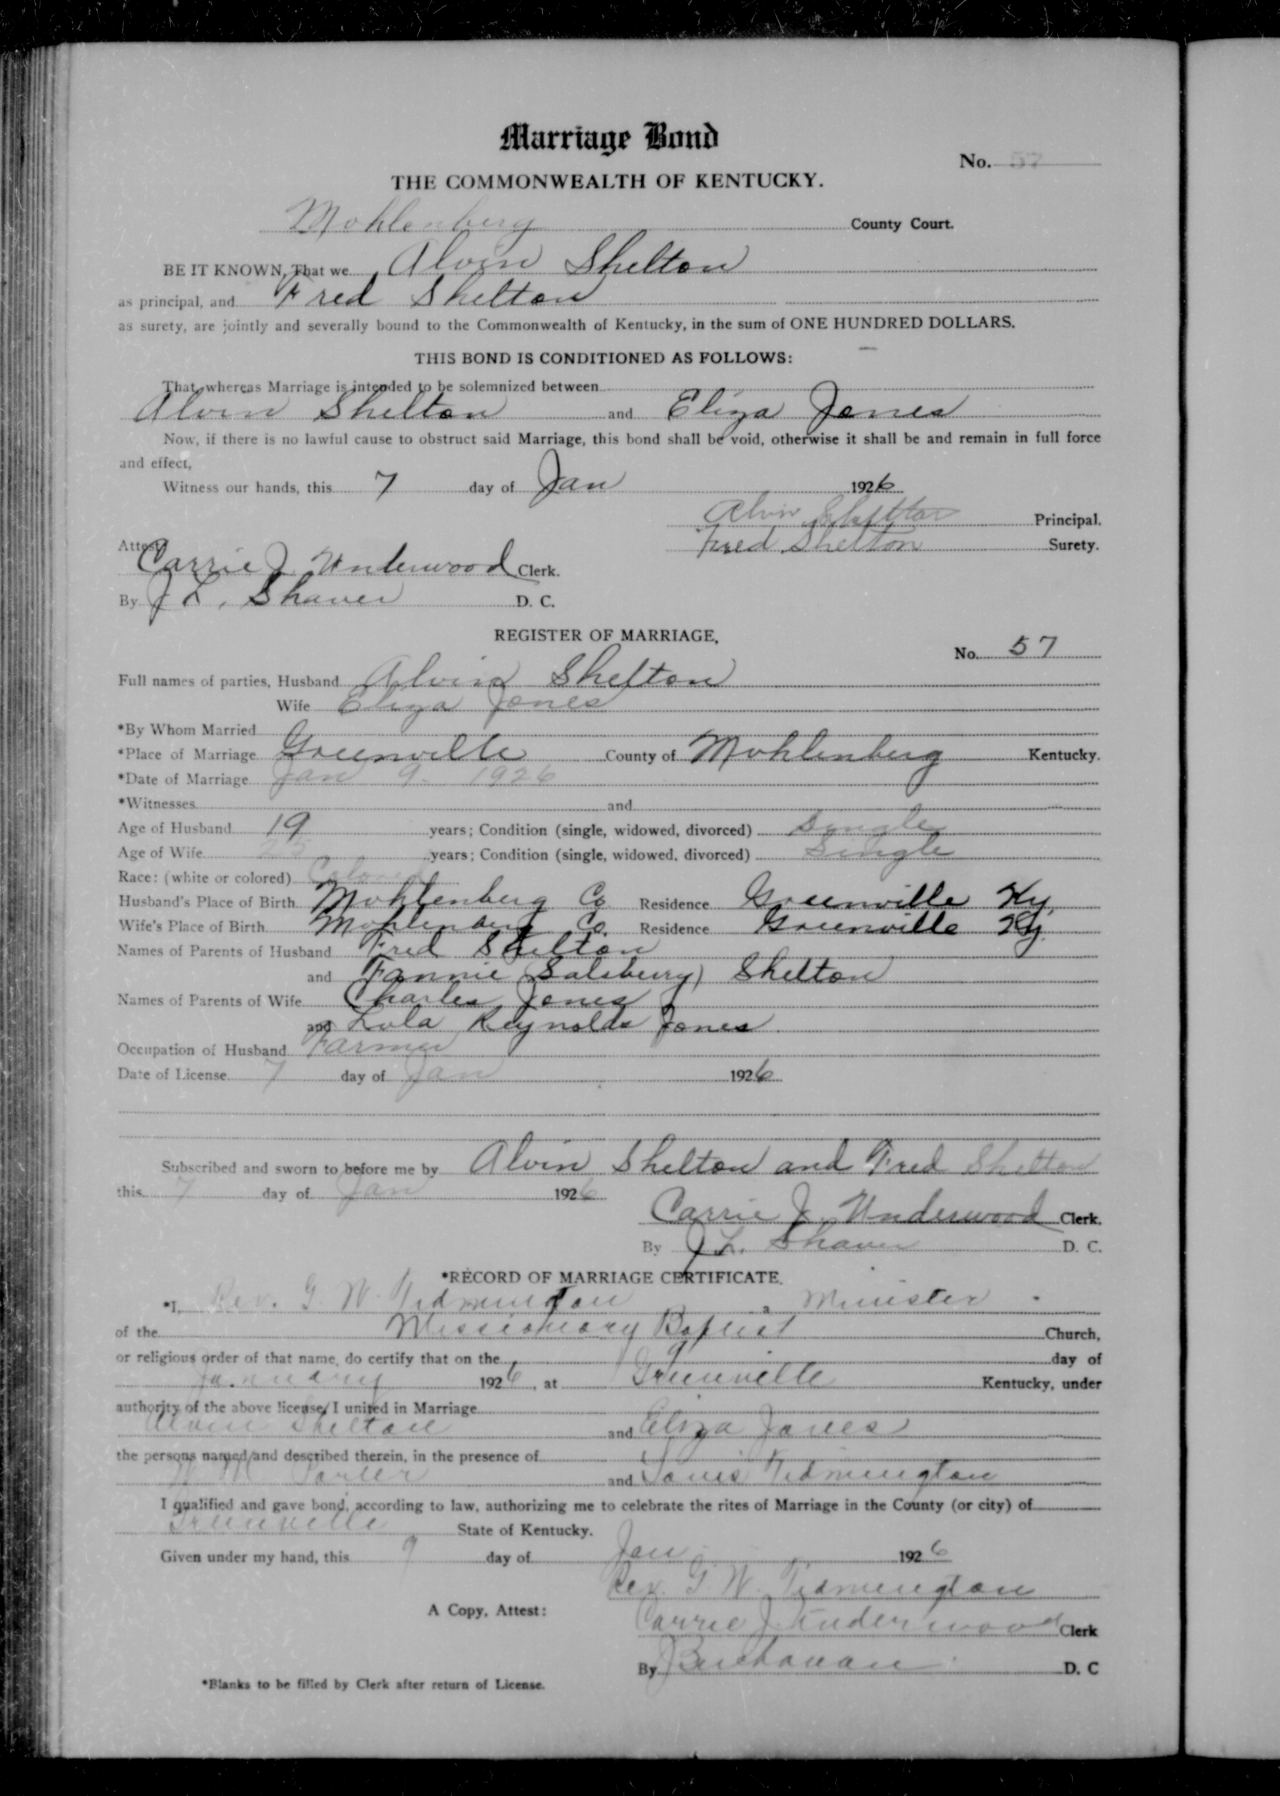 Marriage Bond
No. 57
THE COMMONWEALTH OF KENTUCKY.
Mohlenberg County Court.
BE IT KNOWN, That we Alvin Shelton
as principal, and Fred Shelton
as surety, are jointly and severally bound to the Commonwealth of Kentucky, in the sum of ONE HUNDRED DOLLARS.
THIS BOND IS CONDITIONED AS FOLLOWS:
That whereas Marriage is intended to be solemnized between
Alvin Shelton and Eliza Jones
Now, if there is no lawful cause to obstruct said Marriage, this bond shall be void, otherwise it shall be and remain in full force
and effect,
Witness our hands, this 7 day of Jan 1926
Alvin Shelton Principal.
Fred Shelton Surety.
Attest:
Carrie J. Underwood Clerk.
By J L. Shaver D. C.
REGISTER OF MARRIAGE,
No. 57
Full names of parties, Husband Alvin Shelton
Wife Eliza Jones
*By Whom Married
*Place of Marriage Greenville County of Mohlenberg Kentucky.
*Date of Marriage Jan 9- 1926
*Witnesses and
Age of Husband 19 years; Condition (single, widowed, divorced) Single
Age of Wife years; Condition (single, widowed, divorced) Single
Race: (white or colored) Colored
Husband's Place of Birth Mohlenberg Co Residence Greenville Ky.
Wife's Place of Birth Mohlenberg Co. Residence Greenville Ky.
Names of Parents of Husband Fred Shelton
and Fannie (Salsbury) Shelton
Names of Parents of Wife Charles Jones
and Lula Reynolds Jones.
Occupation of Husband Farmer
Date of License 7 day of Jan 1926
Subscribed and sworn to before me by Alvin Shelton and Fred Shelton
this 7 day of Jan 1926
Carrie J. Underwood Clerk.
By J.L. Shaver D. C.
*RECORD OF MARRIAGE CERTIFICATE.
*I, Rev. G. W. Tidmington a Minister
of the Missionary Baptist Church,
or religious order of that name, do certify that on the 9 day of
January 1926, at Greenville Kentucky, under
authority of the above license, I united in Marriage
Alvin Shelton and Eliza Jones
the persons named and described therein, in the presence of
and Louis Tidmington
I qualified and gave bond, according to law, authorizing me to celebrate the rites of Marriage in the County (or city) of
Greenville State of Kentucky.
Given under my hand, this 9 day of Jan 1926
Rev. G. W. Tidmington
A Copy, Attest:
Carrie J. Underwood Clerk
By J Buchanan. D. C
*Blanks to be filled by Clerk after return of License.